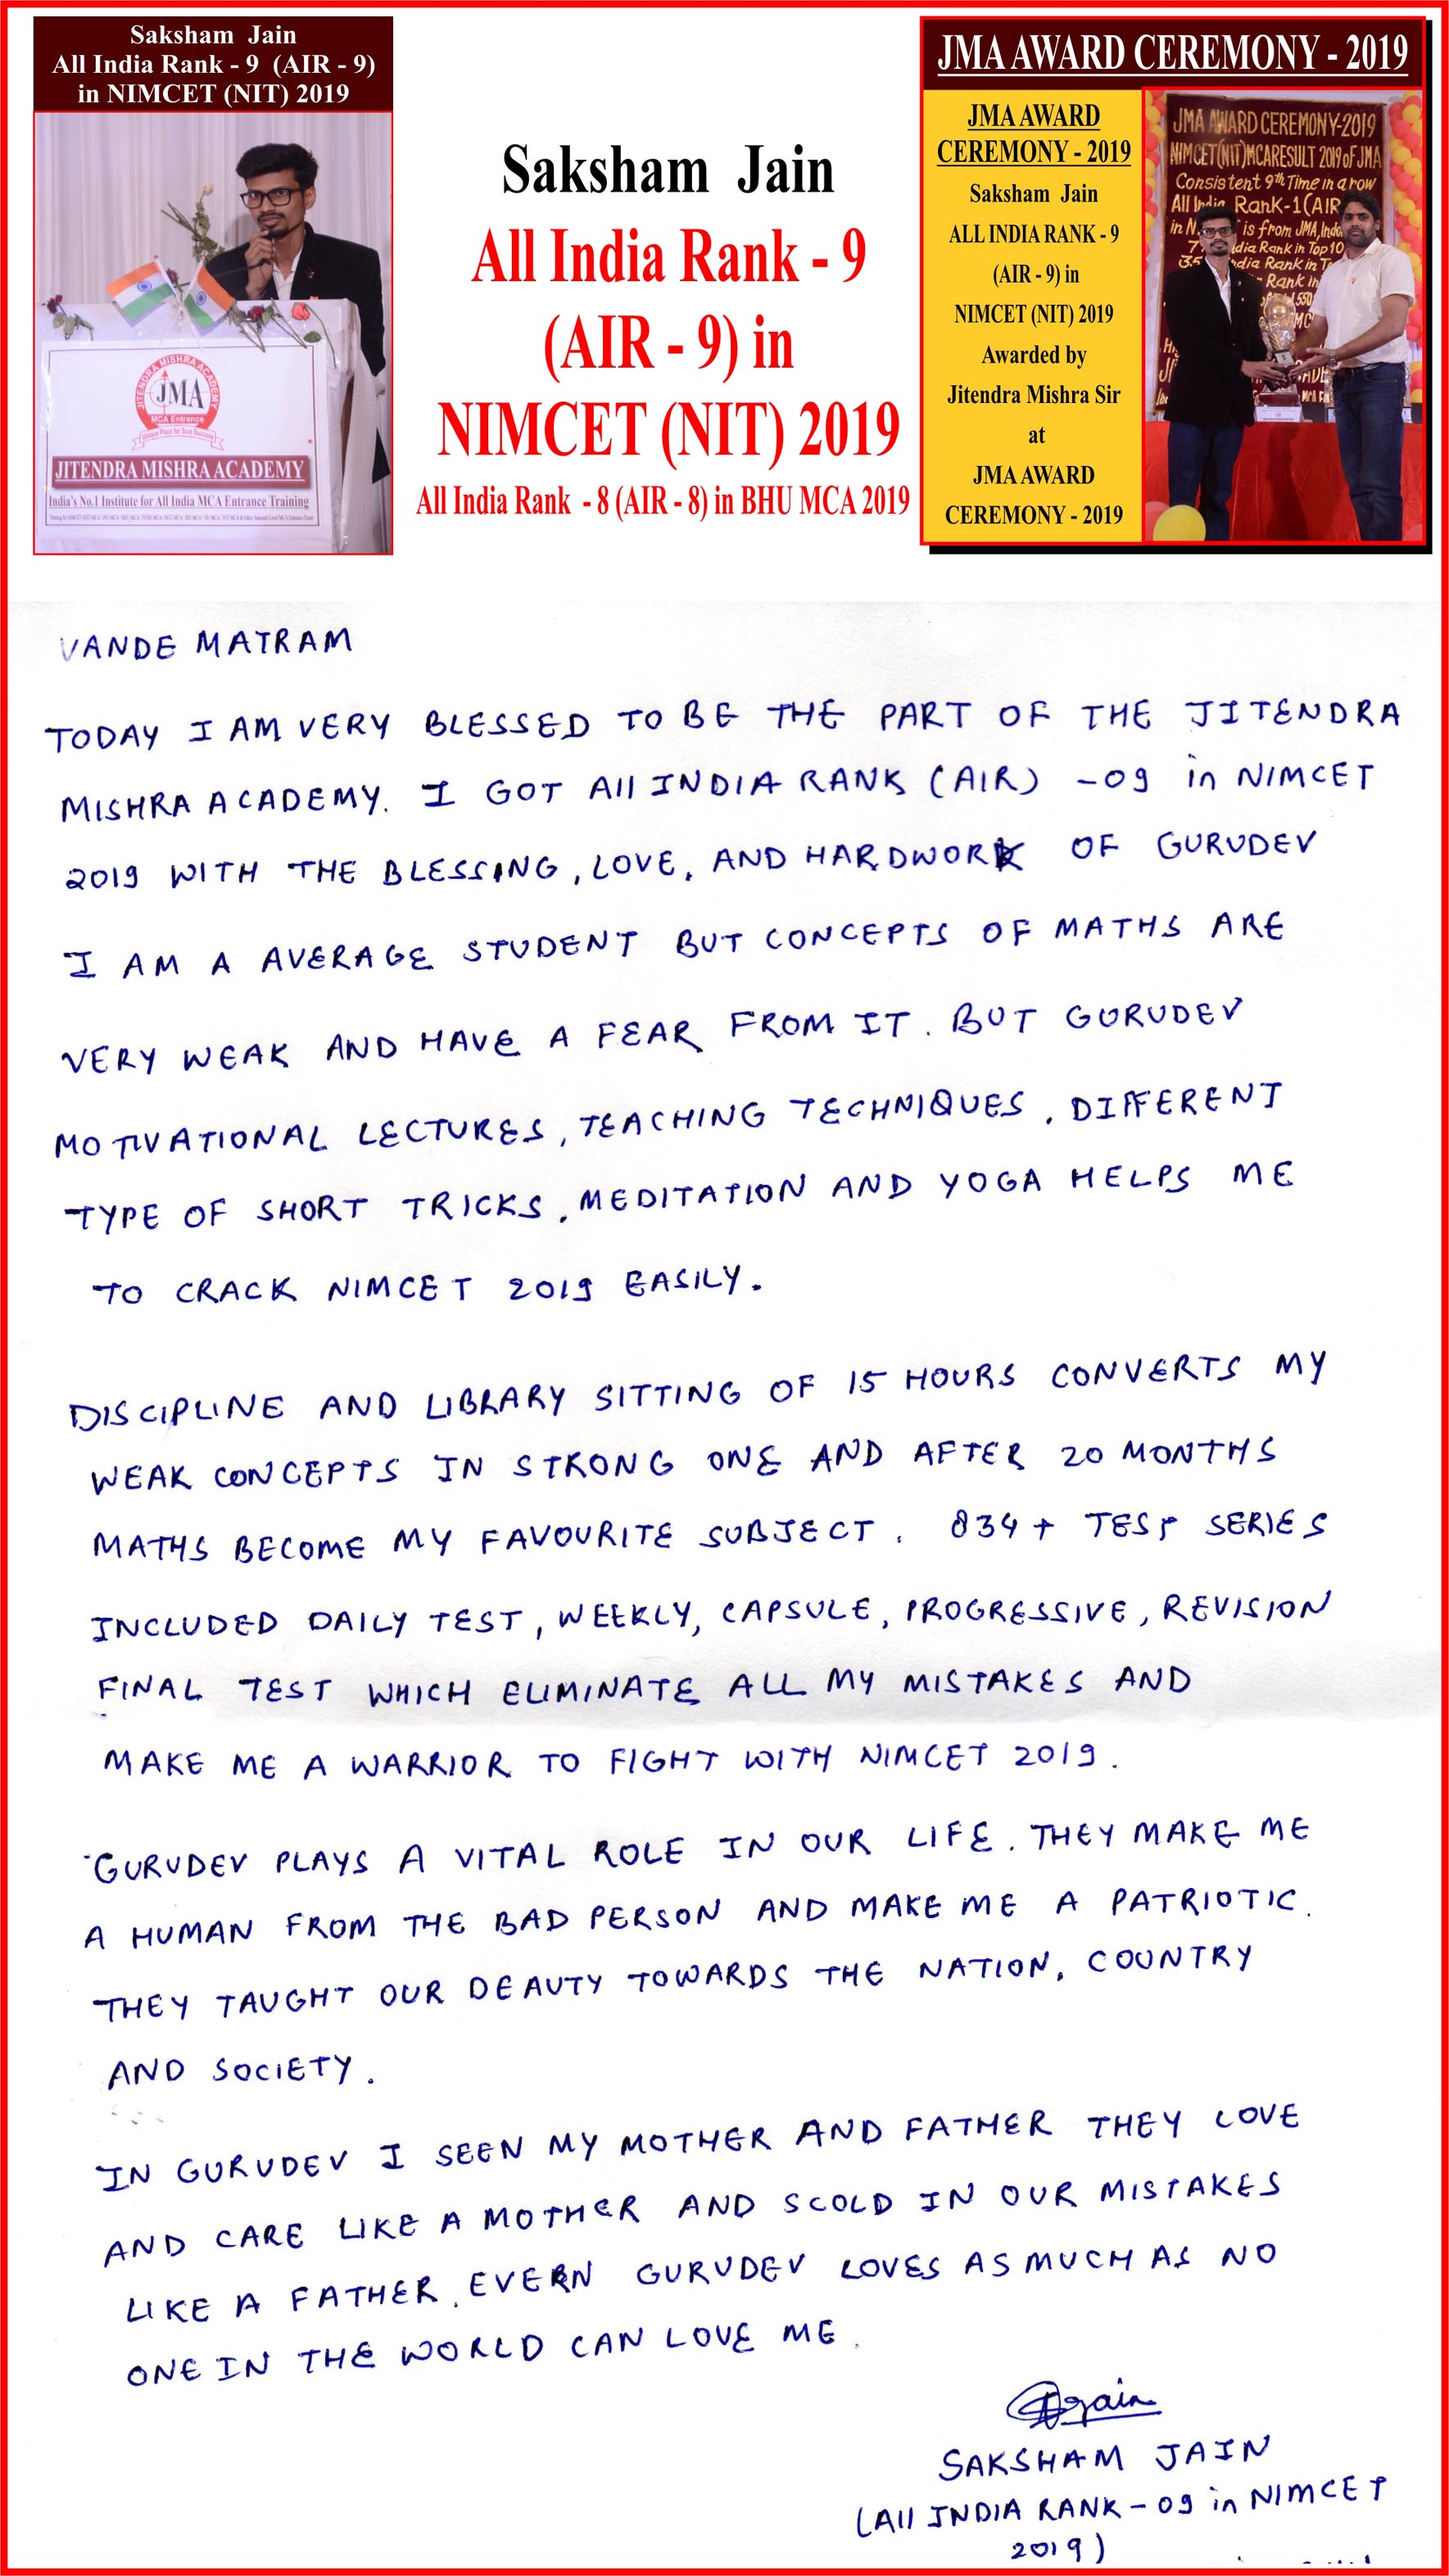 Saksham Jain
All India Rank - 9 (AIR - 9)
in NIMCET (NIT) 2019
JITENDRA MISHRA ACADEMY
JMA
MCA Entrance
JITENDRA MISHRA ACADEMY
India's No.1 Institute for All India MCA Entrance Training
Saksham Jain
All India Rank - 9
(AIR - 9) in
NIMCET (NIT) 2019
All India Rank - 8 (AIR - 8) in BHU MCA 2019
JMA AWARD CEREMONY - 2019
JMA AWARD
CEREMONY - 2019
Saksham Jain
ALL INDIA RANK - 9
(AIR - 9) in
NIMCET (NIT) 2019
Awarded by
Jitendra Mishra Sir
at
JMA AWARD
CEREMONY - 2019
JMA AWARD CEREMONY-2019
NIMCET(NIT)MCARESULT 2019 OF JMA
Consistent 9th Time in a row
All India Rank-1(AIR
in N is from JMA, Indo
7 dia Rank in Top 10
35 dia Rank in T
Rank in
550
VANDE MATRAM
TODAY I AM VERY BLESSED TO BE THE PART OF THE JITENDRA
MISHRA ACADEMY. I GOT All INDIA RANK (AIR) -09 in NIMCET
2019 WITH THE BLESSING, LOVE, AND HARDWORK OF GURUDEV
I AM A AVERAGE STUDENT BUT CONCEPTS OF MATHS ARE
VERY WEAK AND HAVE A FEAR FROM IT. BUT GURUDEV
MOTIVATIONAL LECTURES, TEACHING TECHNIQUES, DIFFERENT
TYPE OF SHORT TRICKS, MEDITATION AND YOGA HELPS ME
TO CRACK NIMCET 2019 EASILY.
DISCIPLINE AND LIBRARY SITTING OF 15 HOURS CONVERTS MY
WEAK CONCEPTS IN STRONG ONE AND AFTER 20 MONTHS
MATHS BECOME MY FAVOURITE SUBJECT. 834+ TEST SERIES
INCLUDED DAILY TEST, WEEKLY, CAPSULE, PROGRESSIVE, REVISION
FINAL TEST WHICH ELIMINATE ALL MY MISTAKES AND
MAKE ME A WARRIOR TO FIGHT WITH NIMCET 2019.
GURUDEV PLAYS A VITAL ROLE IN OUR LIFE. THEY MAKE ME
A HUMAN FROM THE BAD PERSON AND MAKE ME A PATRIOTIC.
THEY TAUGHT OUR DEAUTY TOWARDS THE NATION, COUNTRY
AND SOCIETY.
IN GURUDEV I SEEN MY MOTHER AND FATHER THEY LOVE
AND CARE LIKE A MOTHER AND SCOLD IN OUR MISTAKES
LIKE A FATHER. EVERN GURUDEV LOVES AS MUCH AS NO
ONE IN THE WORLD CAN LOVE ME.
Jain
SAKSHAM JAIN
(All INDIA RANK - 09 in NIMCET
2019)